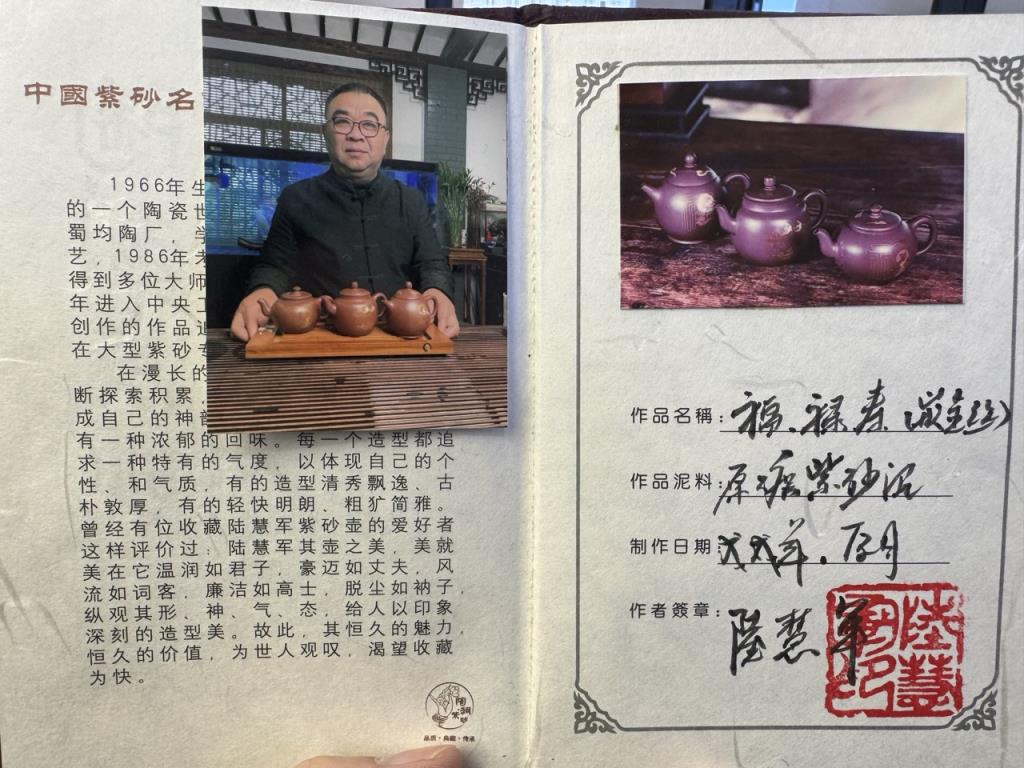 中國紫砂名
1966年生
的一个陶瓷世
蜀均陶厂,学
艺,1986年考
得到多位大师
年进入中央工
创作的作品追
在大型紫砂专
在漫长的
断探索积累,
成自己的神韵
有一种浓郁的回味。每一个造型都追
求一种特有的气度,以体现自己的个
性、和气质,有的造型清秀飘逸、古
朴敦厚,有的轻快明朗、粗犷简雅。
曾经有位收藏陆慧军紫砂壶的爱好者
这样评价过:陆慧军其壶之美,美就
美在它温润如君子,豪迈如丈夫,风
流如词客,廉洁如高士,脱尘如衲子,
纵观其形、神、气、态,给人以印象
深刻的造型美。故此,其恒久的魅力,
恒久的价值,为世人观叹,渴望收藏
为快。
品质·典藏·传承
作品名稱:福、禄、寿(嵌金丝)
作品泥料:原矿紫砂泥
制作日期:戊戌年.
作者簽章:陸慧军
陸慧軍印